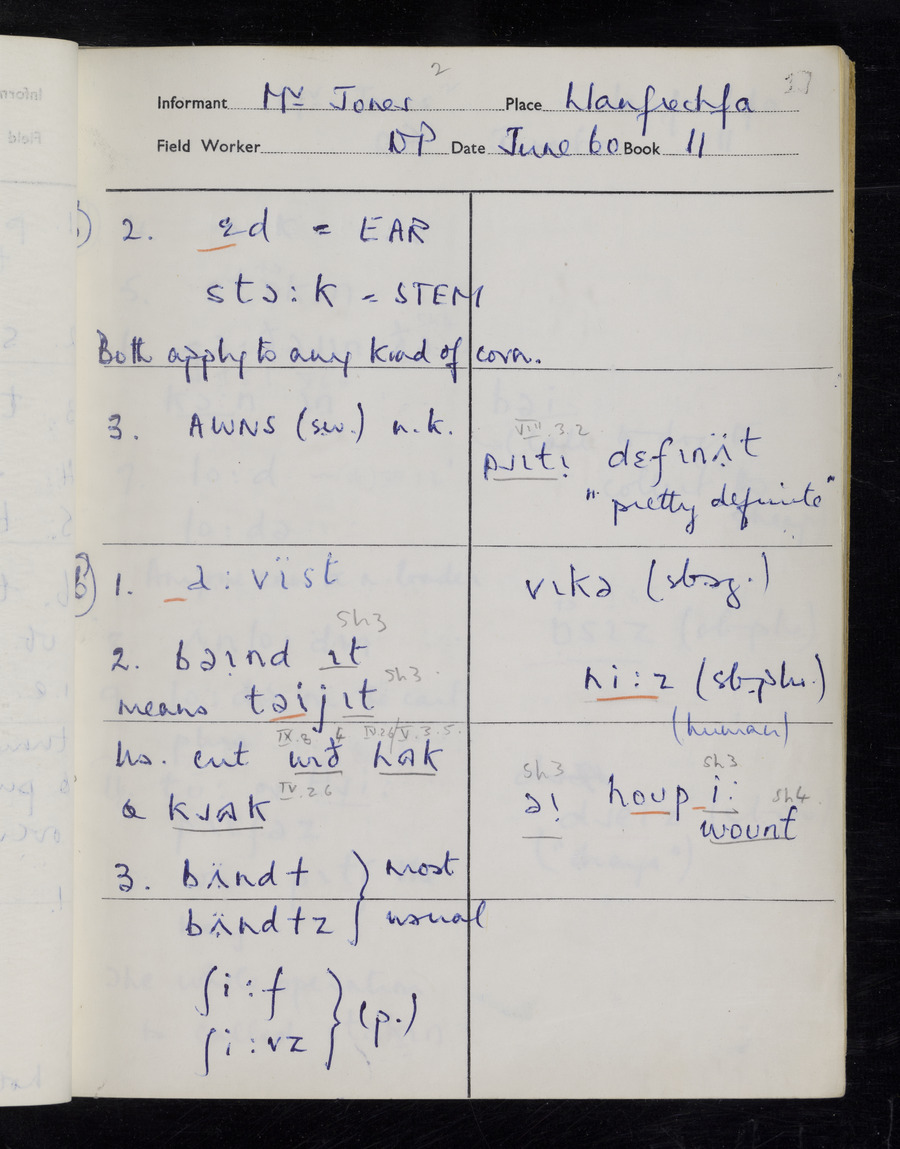 2
37
Informant Mr Jones Place Llanfrechfa
Field Worker NP Date June 60 Book 11
2. ɛd = EAR
stɔ:k = STEM
Both apply to any kind of corn.
3. AWNS (sw.) n.k.
VIII 3.2
pɹɪti definït
"pretty definite"
B) 1. a:vïst
vɪkə (sbsg.)
sh3
2. bəɪnd ɪt
sh3.
means təijɪt
ni:z (sbplu.)
(human)
IX.8 4 IV.26/V.3.5.
ho. cut wɪð hʊk
IV.26
& kɹʊk
sh3 sh3
ə! houp i:
sh4
wount
3. bʌ̈ndɫ } most
bʌ̈ndɫz } usual
ʃi:f
ʃi:vz } (p.)